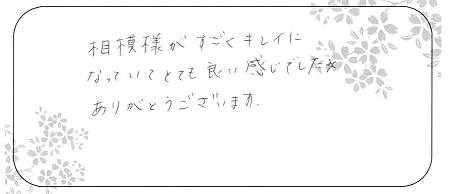 相模様がすごくキレイに
なっていてとても良い感じでした☆
ありがとうございます.